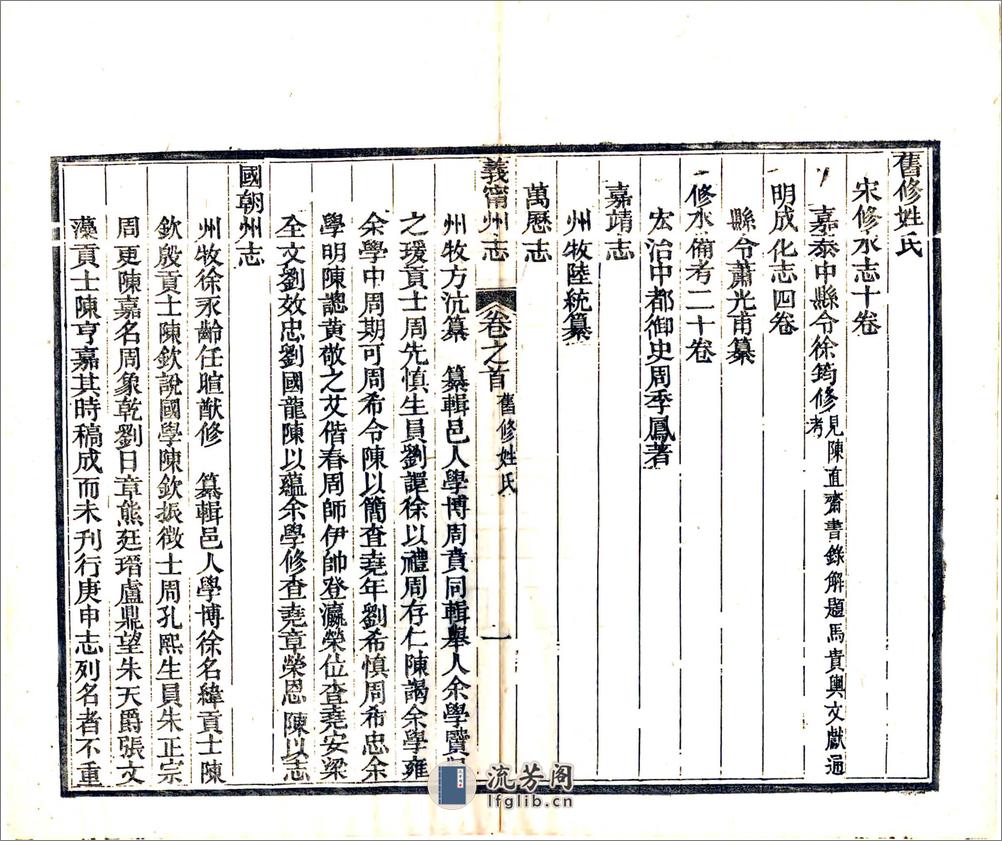 舊修姓氏
宋修水志十卷
嘉泰中縣令徐筠修見陳直齋書錄解題馬貴輿文獻通考
明成化志四卷
縣令蕭光甫纂
修水備考二十卷
宏治中都御史周季鳳著
嘉靖志
州牧陸統纂
萬歷志
義甯州志 卷之首 舊修姓氏 一
州牧方沆纂 纂輯邑人學博周賁同輯舉人余學夔
之瑗貢士周先慎生員劉譚徐以禮周存仁陳謁余學雍
余學中周期可周希令陳以簡查堯年劉希慎周希忠余
學明陳謥黄敬之艾偕春周師伊帥登瀛榮位查堯安梁
全文劉效忠劉國龍陳以蘊余學修查堯章榮恩陳以志
國朝州志
州牧徐永齡任暄猷修 纂輯邑人學博徐名緯貢士陳
欽殷貢士陳欽說國學陳欽振徵士周孔熙生員朱正宗
周更陳嘉名周象乾劉日章熊廷瑨盧鼎望朱天爵張文
藻貢士陳亨嘉其時稿成而未刊行庚申志列名者不重
流芳阁
lfglib.cn